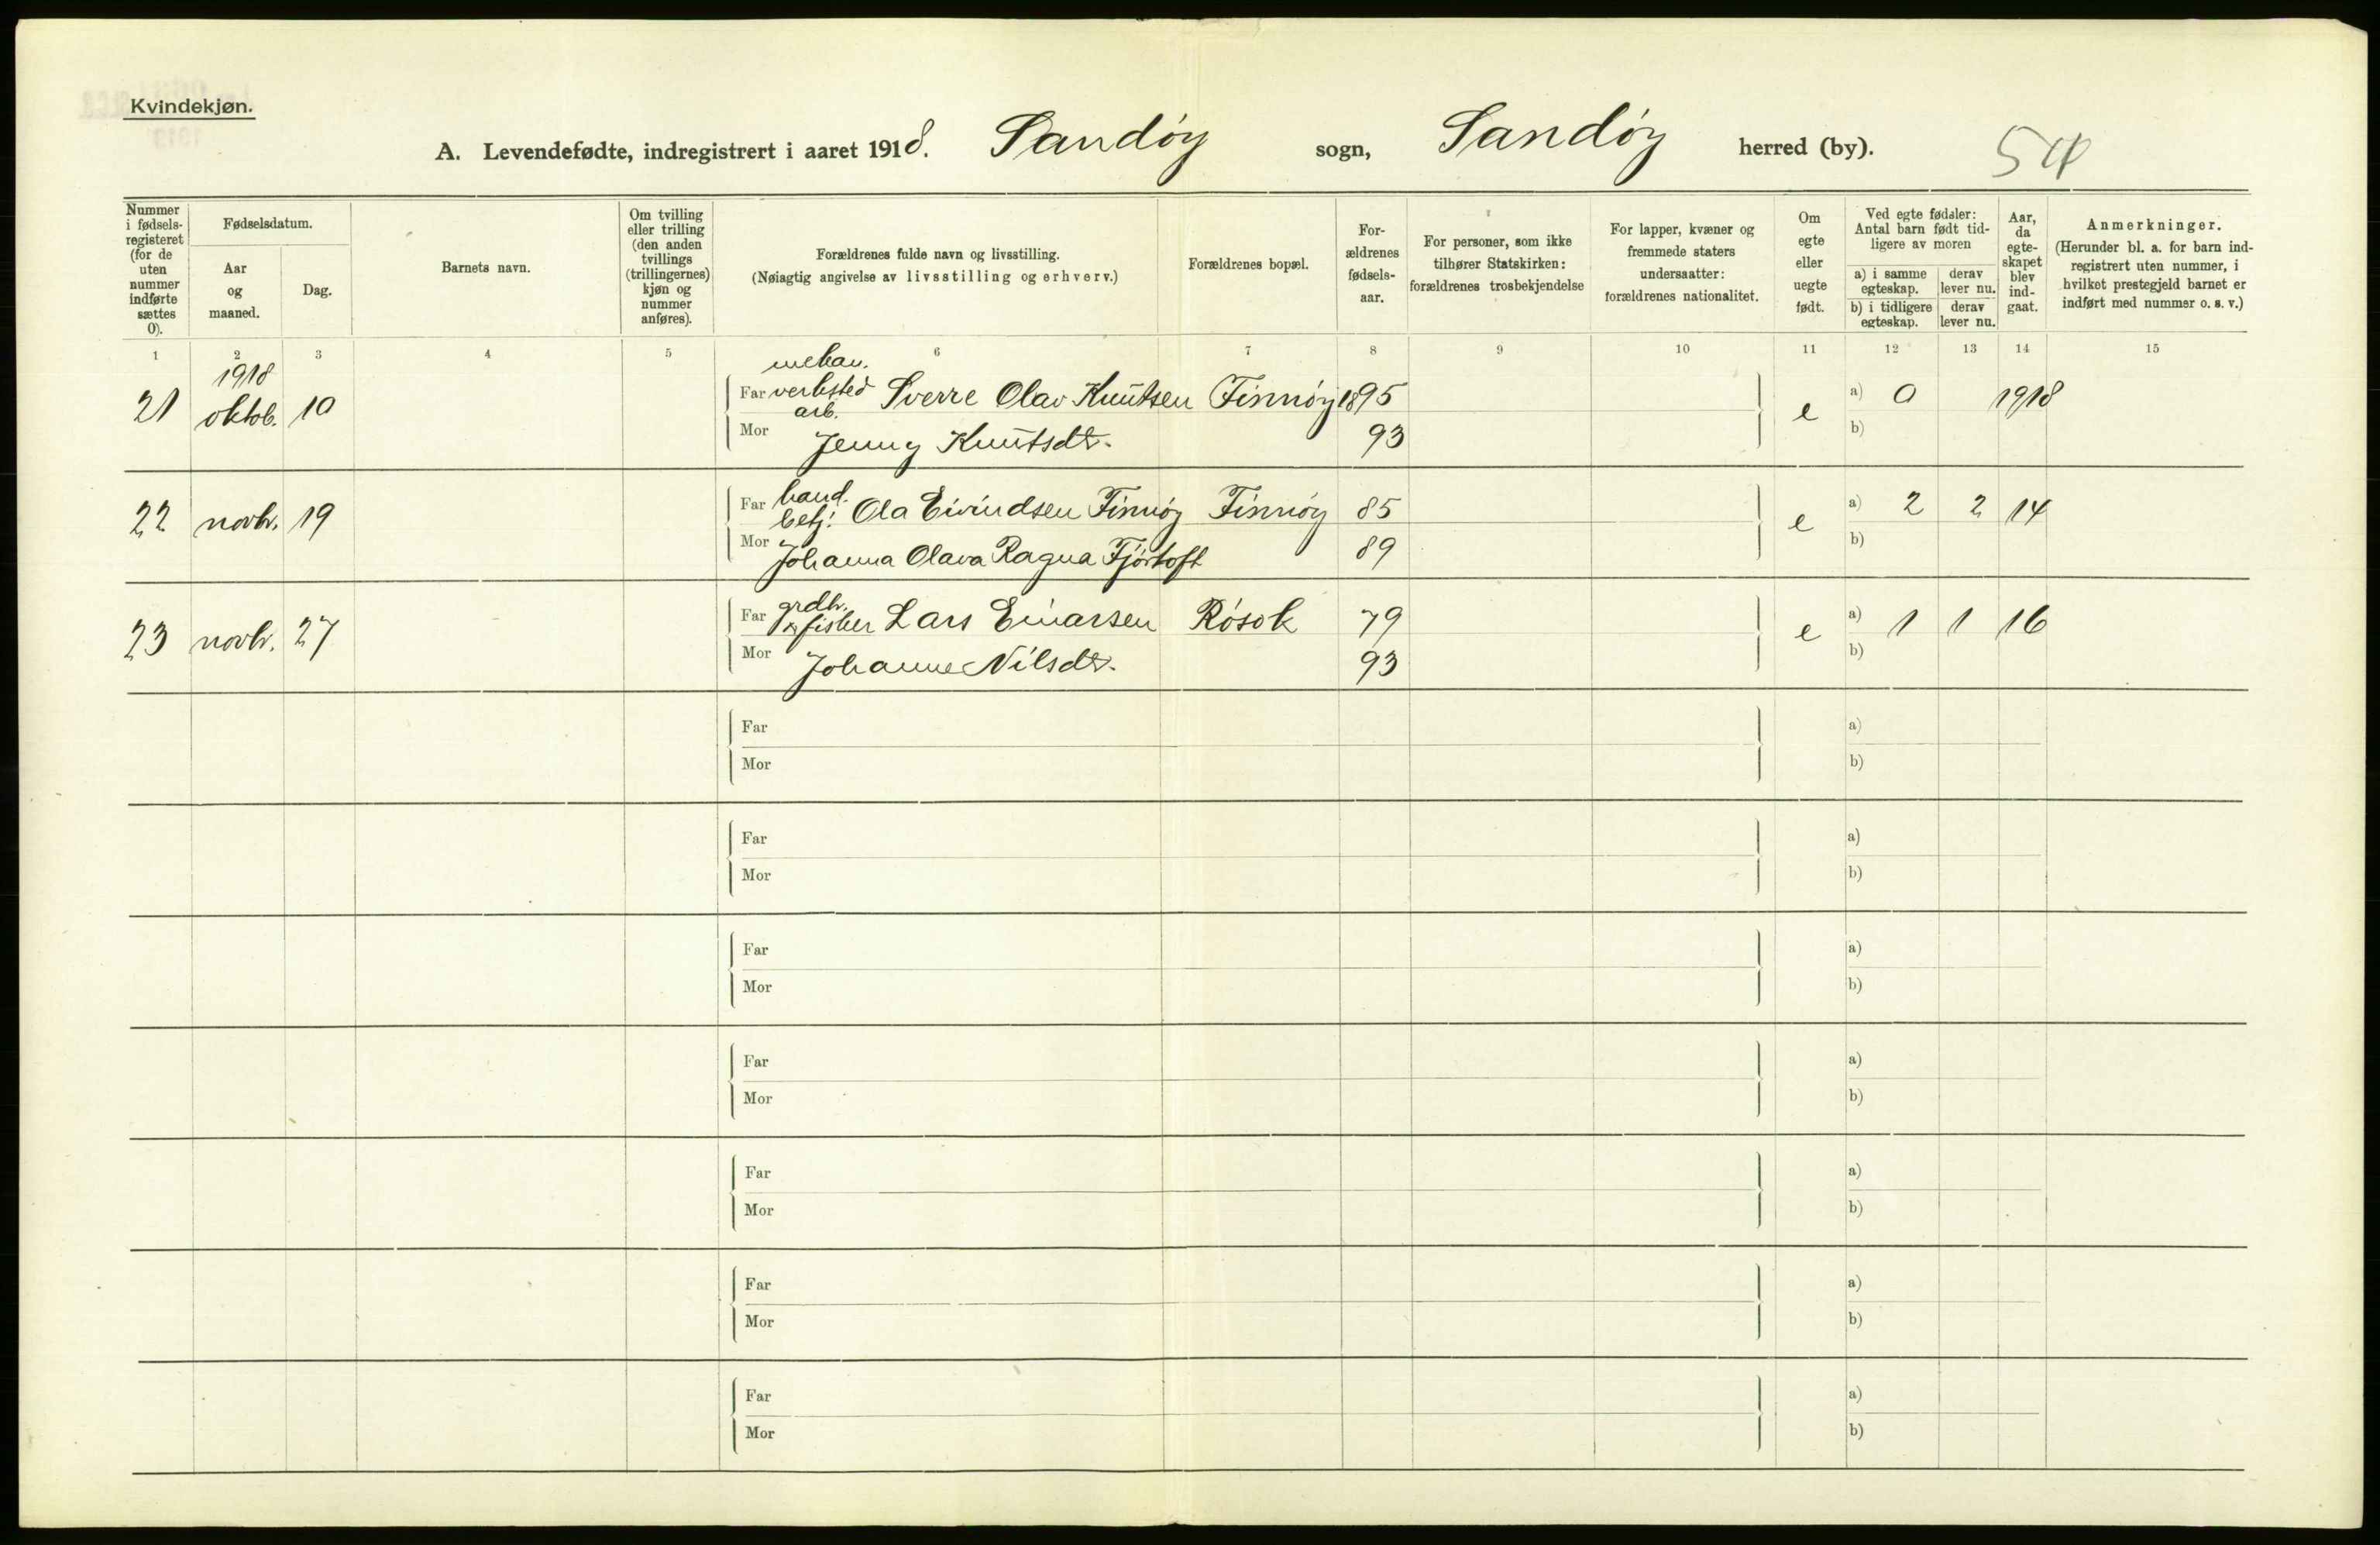 Kvindekjøn.
A. Levendefødte, indregistrert i aaret 1918. Sandøy sogn, Sandøy herred (by). 54
Nummer i fødsels-registeret (for de uten nummer indførte sættes 0).
Fødselsdatum.
Aar og maaned.
Dag.
Barnets navn.
Om tvilling eller trilling (den anden tvillings (trillingernes) kjøn og nummer anføres).
Forældrenes fulde navn og livsstilling.
(Nøiagtig angivelse av livsstilling og erhverv.)
Forældrenes bopæl.
For-ældrenes fødsels-aar.
For personer, som ikke tilhører Statskirken: forældrenes trosbekjendelse
For lapper, kvæner og fremmede staters undersaatter: forældrenes nationalitet.
Om egte eller uegte født.
Ved egte fødsler: Antal barn født tid-ligere av moren
a) i samme egteskap. derav lever nu.
b) i tidligere egteskap. derav lever nu.
Aar, da egte-skapet blev ind-gaat.
Anmerkninger.
(Herunder bl. a. for barn ind-registrert uten nummer, i hvilket prestegjeld barnet er indført med nummer o. s. v.)
1 2 3 4 5 6 7 8 9 10 11 12 13 14 15
21 1918 oktob. 10 Far mekan. verksted arb. Sverre Olav Knutsen Finnøy 1895 e a) 0 1918
Mor Jenny Knutsdtr. 93 b)
22 novbr. 19 Far hand. betj. Ola Eivindsen Finnøy Finnøy 85 e a) 2 2 14
Mor Johanna Olava Ragna Fjørtoft 89 b)
23 novbr. 27 Far grdbr. & fisker Lars Einarsen Røsok 79 e a) 1 1 16
Mor Johanne Nilsdtr. 93 b)
Far a)
Mor b)
Far a)
Mor b)
Far a)
Mor b)
Far a)
Mor b)
Far a)
Mor b)
Far a)
Mor b)
Far a)
Mor b)